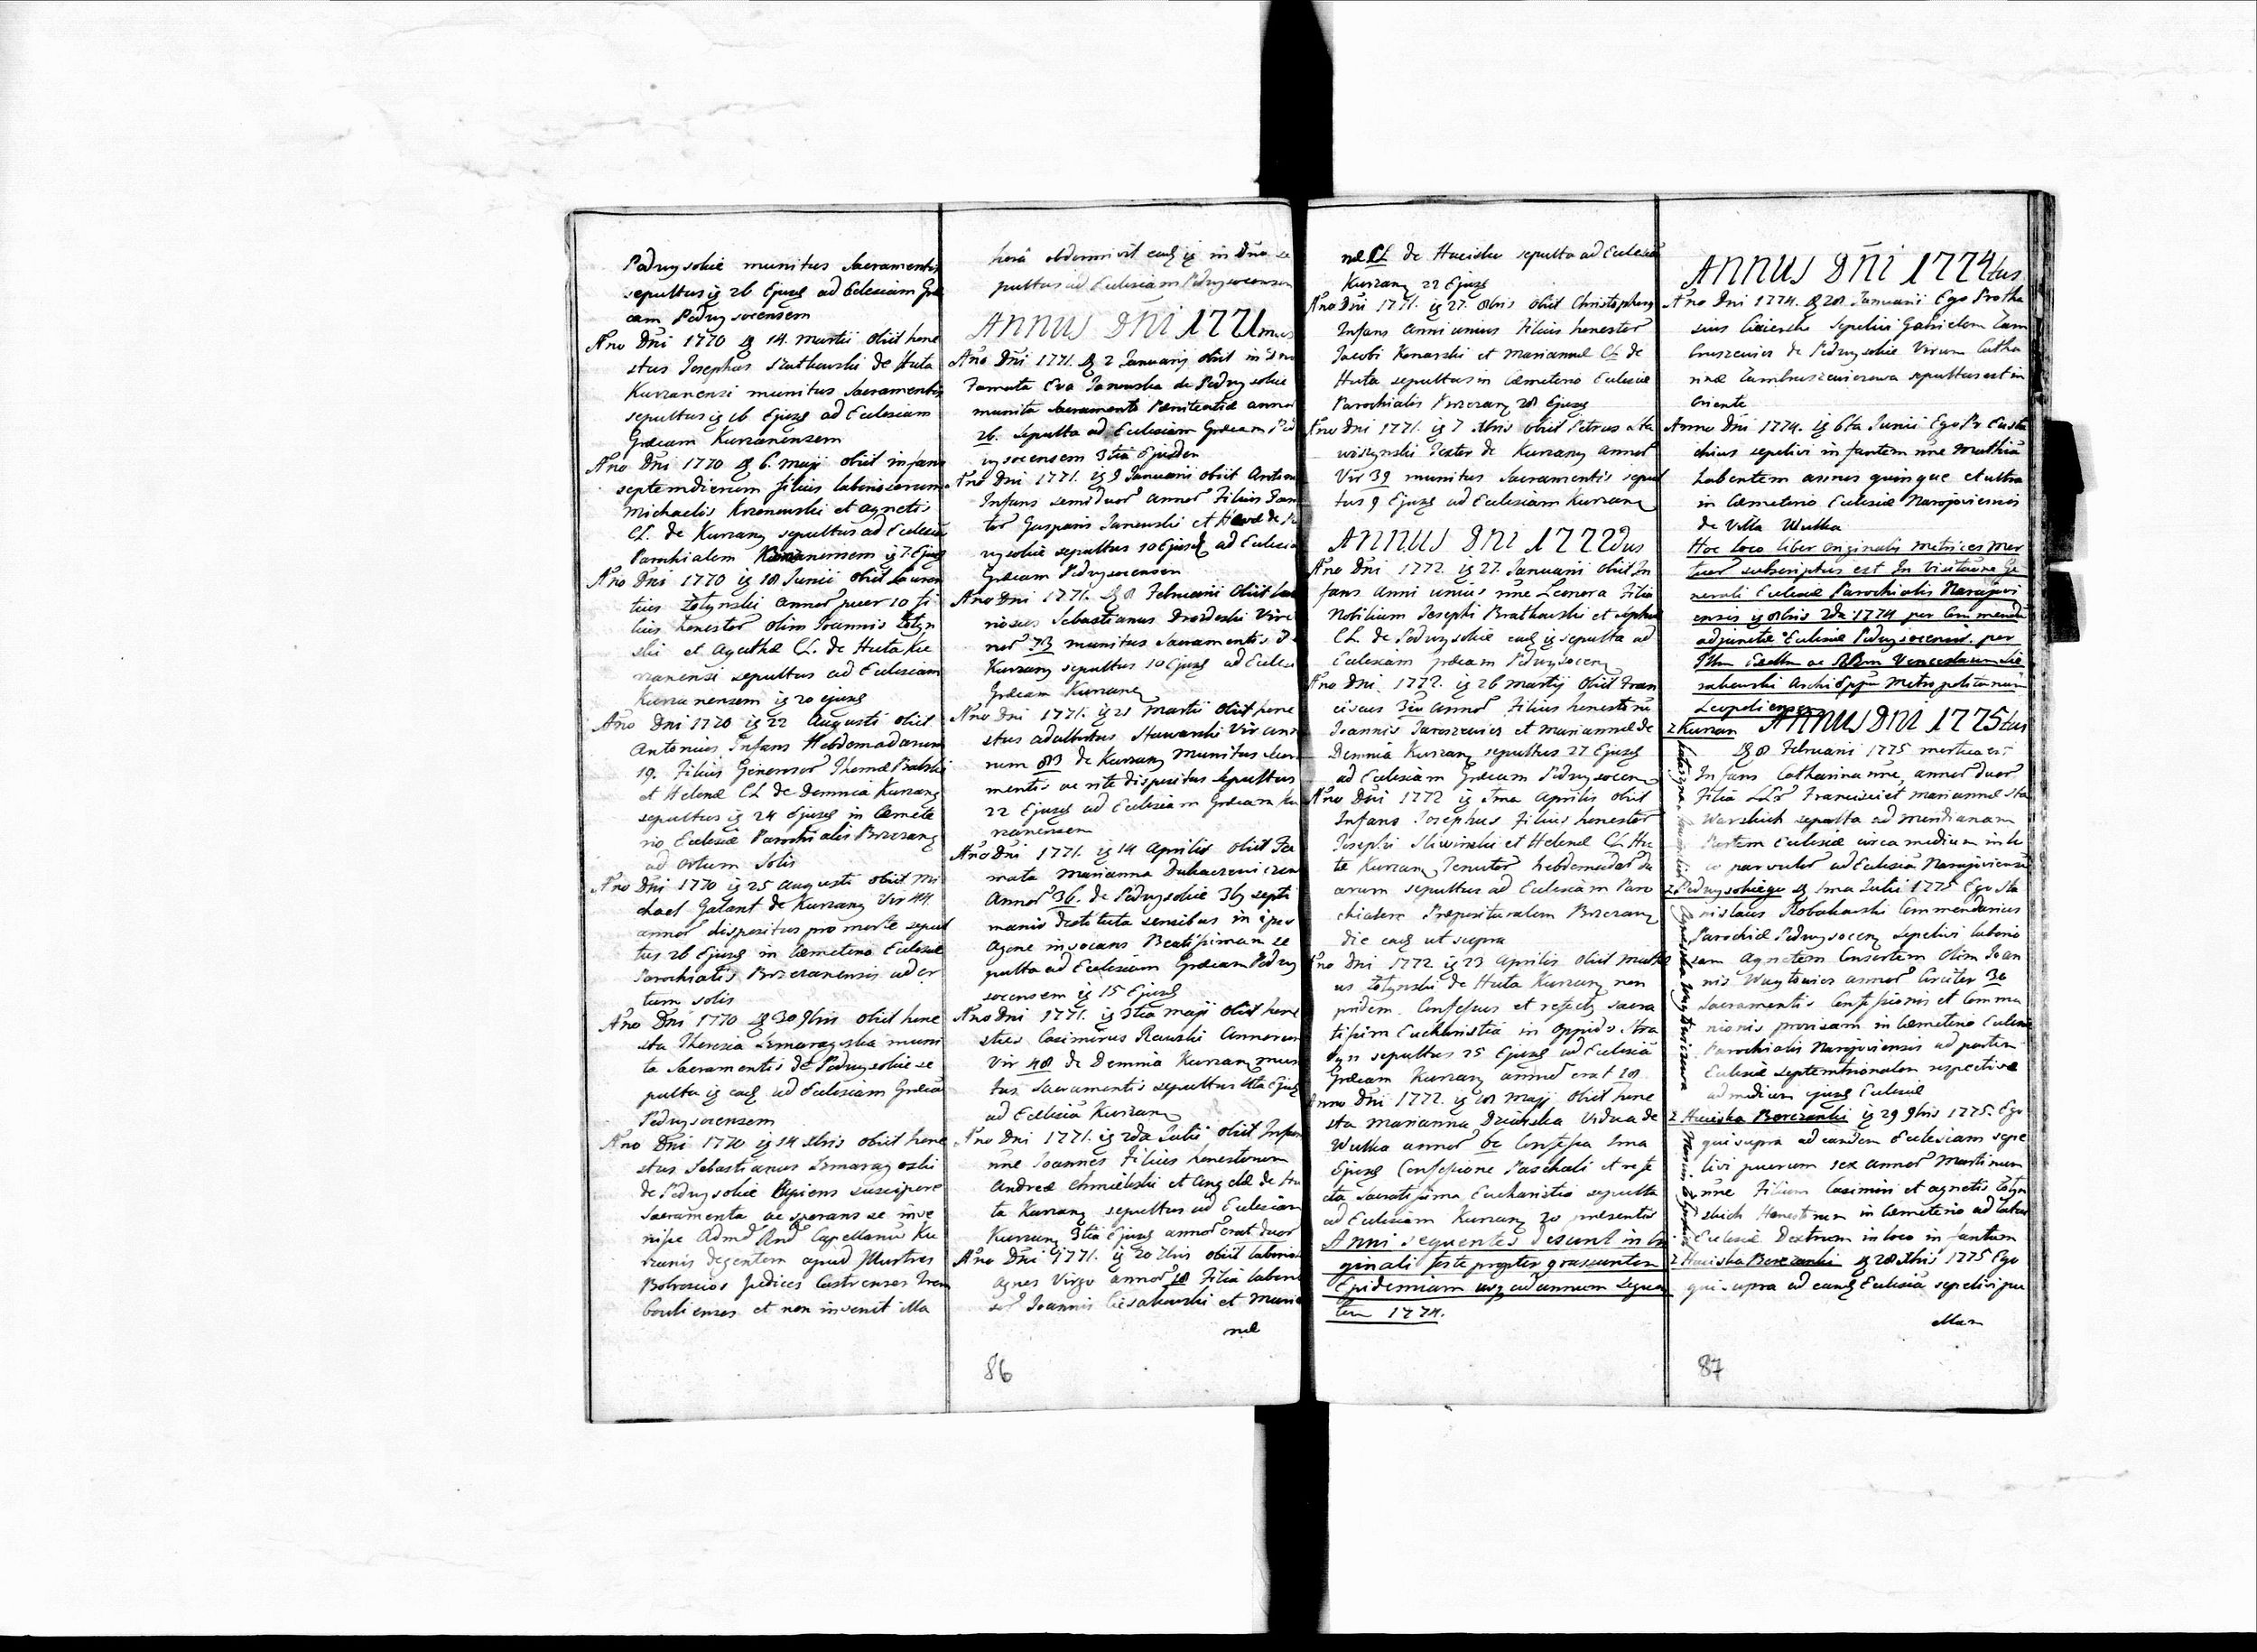 Podwysokie munitus Sacramentis
sepultus ig 26 Ejusq ad Eclesiam Græ
cam Podwysocensem
Año Dñi 1770 ig 14. Martii obiit hone
stus Josephus Rutkowski de Huta
Kurzanensi munitus Sacramentis
sepultus ig 16 Ejusq ad Eclesiam
Græcam Kurzanensem
Año Dñi 1770 ig 6. Maji obiit infans
septemdierum filius laboriosorum
Michaelis Krzenowski et Agnetis
CL. de Kurzany sepultus ad Eclesiã
Parochialem ig 7. Ejusq
Año Dñi 1770 ig 18 Junii obiit Lauren
tius Żołynski annor puer 10 fi
lius honestor olim Joannis Żołyn
ski et Agathæ CL. de Huta Ku
rzanensi sepultus ad Eclesiam
Kurzanensem ig 20 ejusq
Año Dñi 1770 ig 22 Augusti obiit
Antonius Infans Hebdomadarum
19. Filius Generosor Thomæ
et Helenæ CL de Demnia Kurzany
sepultus ig 24 Ejusq in Cæmete
rio Eclesiæ Parochialis Brzezany
ad ortum Solis
Año Dñi 1770 ig 25 Augusti obiit Mi
chael Galant de Kurzany Vir 44
annor dispositus pro morte sepul
tus 26 Ejusq in Cæmeterio Eclesiæ
Parochialis Brzezanensis ad or
tum solis
Año Dñi 1770 ig 30 9bris obiit hone
sta Theresia Szmaragska muni
ta Sacramentis de Podwysokie se
pulta ig eadq ad Eclesiam Græcã
Podwysocensem
Año Dñi 1770 ig 14 Xbris obiit hone
stus Sebastianus Szmaragoski
de Podwysokie cupiens suscipere
Sacramenta ac sperans se inve
nisse Admd Rnd Capellanũ Ku
rzanis degentem apud Illustres
Judices Castrenses Trem
boulienses et non invenit illa
hora obdormivit eadq ig in Dño se
pultus ad Eclesiam Podwysocensem
ANNUS DÑI 1771mus
Año Dñi 1771. ig 2 Januarij obiit in Dño
Famata Eva Janowska de Podwysokie
munita Sacramento Pænitentiæ annor
26. Sepulta ad Eclesiam Græcam Pod
wysocensem 3tia Ejusdem
Año Dñi 1771. ig 9 Januarii obiit Anton
Infans semiduor annor Filius Fam
tor Gasparis Janowski et Hevæ de Po
wysokie sepultus 10 Ejusq ad Eclesia
Græcam Podwysocensem
Año Dñi 1771. ig 8 Februarii obiit labo
riosus Sebastianus Drozdeski Vir
nor 73 munitus Sacramentis de
Kurzany sepultus 10 Ejusq ad Ecle
Græcam Kurzany
Año Dñi 1771. ig 21 Martii obiit hone
stus Adalbertus Stawarski Vir ann
rum 83 de Kurzany Munitus Sacra
mentis ac rite dispositus sepultus
22 Ejusq ad Eclesiam Græcam Ku
rzanensem
Año Dñi 1771. ig 14 Aprilis obiit Fa
mata Marianna
Annor 36. de Podwysokie 3bq septi
manis destituta sensibus in ipso
Agone invocans Beatissimam se
pulta ad Eclesiam Græcam Podwy
socensem ig 15 Ejusq
Año Dñi 1771. ig 3tia Maji obiit hone
stus Casimirus Rawski Annorum
Vir 48 de Demnia Kurzany muni
tus Sacramentis sepultus 4ta Ejusq
ad Eclesiã Kurzany
Año Dñi 1771. ig 2da Julii obiit Infans
nñe Joannes Filius honestorum
Andreæ Chmielski et Angelæ de Hu
ta Kurzany sepultus ad Eclesiam
Kurzany 3tia Ejusq annor erat duor
Año Dñi 1771. ig 20 7bris obiit laborio
Agnes Virgo annor 18 Filia labori
sor Joannis Ciesakowski et Maria
næ
86
næ CL de Hucisko sepulta ad Eclesiã
Kurzany 22 Ejusq
Año Dñi 1771. ig 27. 8bris obiit Christophorq
Infans anni unius Filius honestor
Jacobi Konarski et Mariannæ CL de
Huta sepultus in Cæmeterio Eclesiæ
Parochialis Brzezany 28 Ejusq
Año Dñi 1771. ig 7 Xbris obiit Petrus Sta
wiszynski Textor de Kurzany annor
Vir 39 munitus Sacramentis sepul
tus 9 Ejusq ad Eclesiam Kurzany
ANNUS DÑI 1772dus
Año Dñi 1772. ig 27. Januarii obiit In
fans anni unius nñe Leonora Filia
Nobilium Josephi Bratkowski et Sophiæ
CL de Podwysokie eadq ig sepulta ad
Eclesiam græcam Podwysoceny
Año Dñi. 1772. ig 26 Martij obiit Fran
ciscus 3iu annor Filius honestorũ
Joannis Jaroszewicz et Mariannæ de
Demnia Kurzany sepultus 27 Ejusq
ad Eclesiam Græcam Podwysoceny
Año Dñi 1772 ig 1ma Aprilis obiit
Infans Josephus Filius honestor
Josephi Sliwinski et Helenæ CL Hu
te Kurzany hebdomadar du
arum sepultus ad Eclesiam Paro
chialem Præpositoralem Brzezany
die eadq ut supra
Año Dñi 1772. ig 23 Aprilis obiit Mathæ
us Żołynski de Huta Kurzany non
pridem Confessus et refectq sacra
tissim Eucharistia in oppido Stra
tyn sepultus 25 Ejusq ad Eclesiã
Græcam Kurzany annor erat 18
Anno Dñi 1772. ig 18 Maji obiit hone
sta Marianna Dzińska Vidua de
Wulka annor 60 Confessa 1ma
Ejusq Confessione Paschali et refe
cta Sacratissima Eucharistia sepulta
ad Eclesiam Kurzany 20 præsentis
Anni sequentes desunt in ori
ginali forte propter grassantem
Epidemiam usq ad annum sequen
tem 1774.
ANNUS DÑI 1774tus
Año Dñi 1774. ig 28. Januarii Ego Protha
sius sepelivi Gabrielem Zam
bruszewicz de Podwysokie Virum Catha
rinæ Zambruszewiczowa sepultus est in
Oriente
Anno Dñi 1774. ig 6ta Junii Ego Pr Eusta
chius sepelivi infantem nñe Mathiã
habentem annos quinque et ultra
in Cæmeterio Eclesiæ Narajoviensis
de Villa Wulka
Hoc loco liber originalis Metrices Mor
tuor subscriptus est In Visitatione Ge
nerali Eclesiæ Parochialis Narajovi
ensis ig 8bris 2da 1774 per Commenda
adjunctæ Eclesiæ Podwysocensis per
Illm Exellm ac RRm Venceslaum Sie
rakowski Archi Eppũ Metropolitanum
Leopoliensem
ANNUS DÑI 1775tus
z Kurzan ig 8 Februarii 1775 mortua est
Infans Catharina nñe, annor duor
Filia LLr Francisci et Mariannæ Sta
warskich sepulta ad meridianam
Partem Eclesiæ circa medium in lo
co parvulor ad Eclesiã Narajoviensẽ
z Podwysokiego ig 1ma Julii 1775 Ego Sta
nislaus Robakowski Commendarius
Parochiæ Podwysoceny sepelivi laborio
sam Agnetem Consortem Olim Joan
nis Woytowicz annor Circiter 30
Sacramentis Confessionis et Commu
nionis provisam in Cæmeterio Eclesiæ
Parochialis Narajoviensis ad partem
Eclesiæ septemtrionalem respective
ad medium ejusq Eclesiæ
Agniszka Woytowiczowa
z Huciska Borezanki ig 29 9bris 1775. Ego
qui supra ad eandem Eclesiam sepe
livi puerum sex annor Martinum
nñe Filium Casimiri et Agnetis Żołyn
skich Honestorum in Cæmeterio ad latus
Eclesiæ Dextrum in loco infantum
z Huciska Borezanki ig 28 Xbris 1775 Ego
qui supra ad eandq Eclesiã sepelivi pu
87